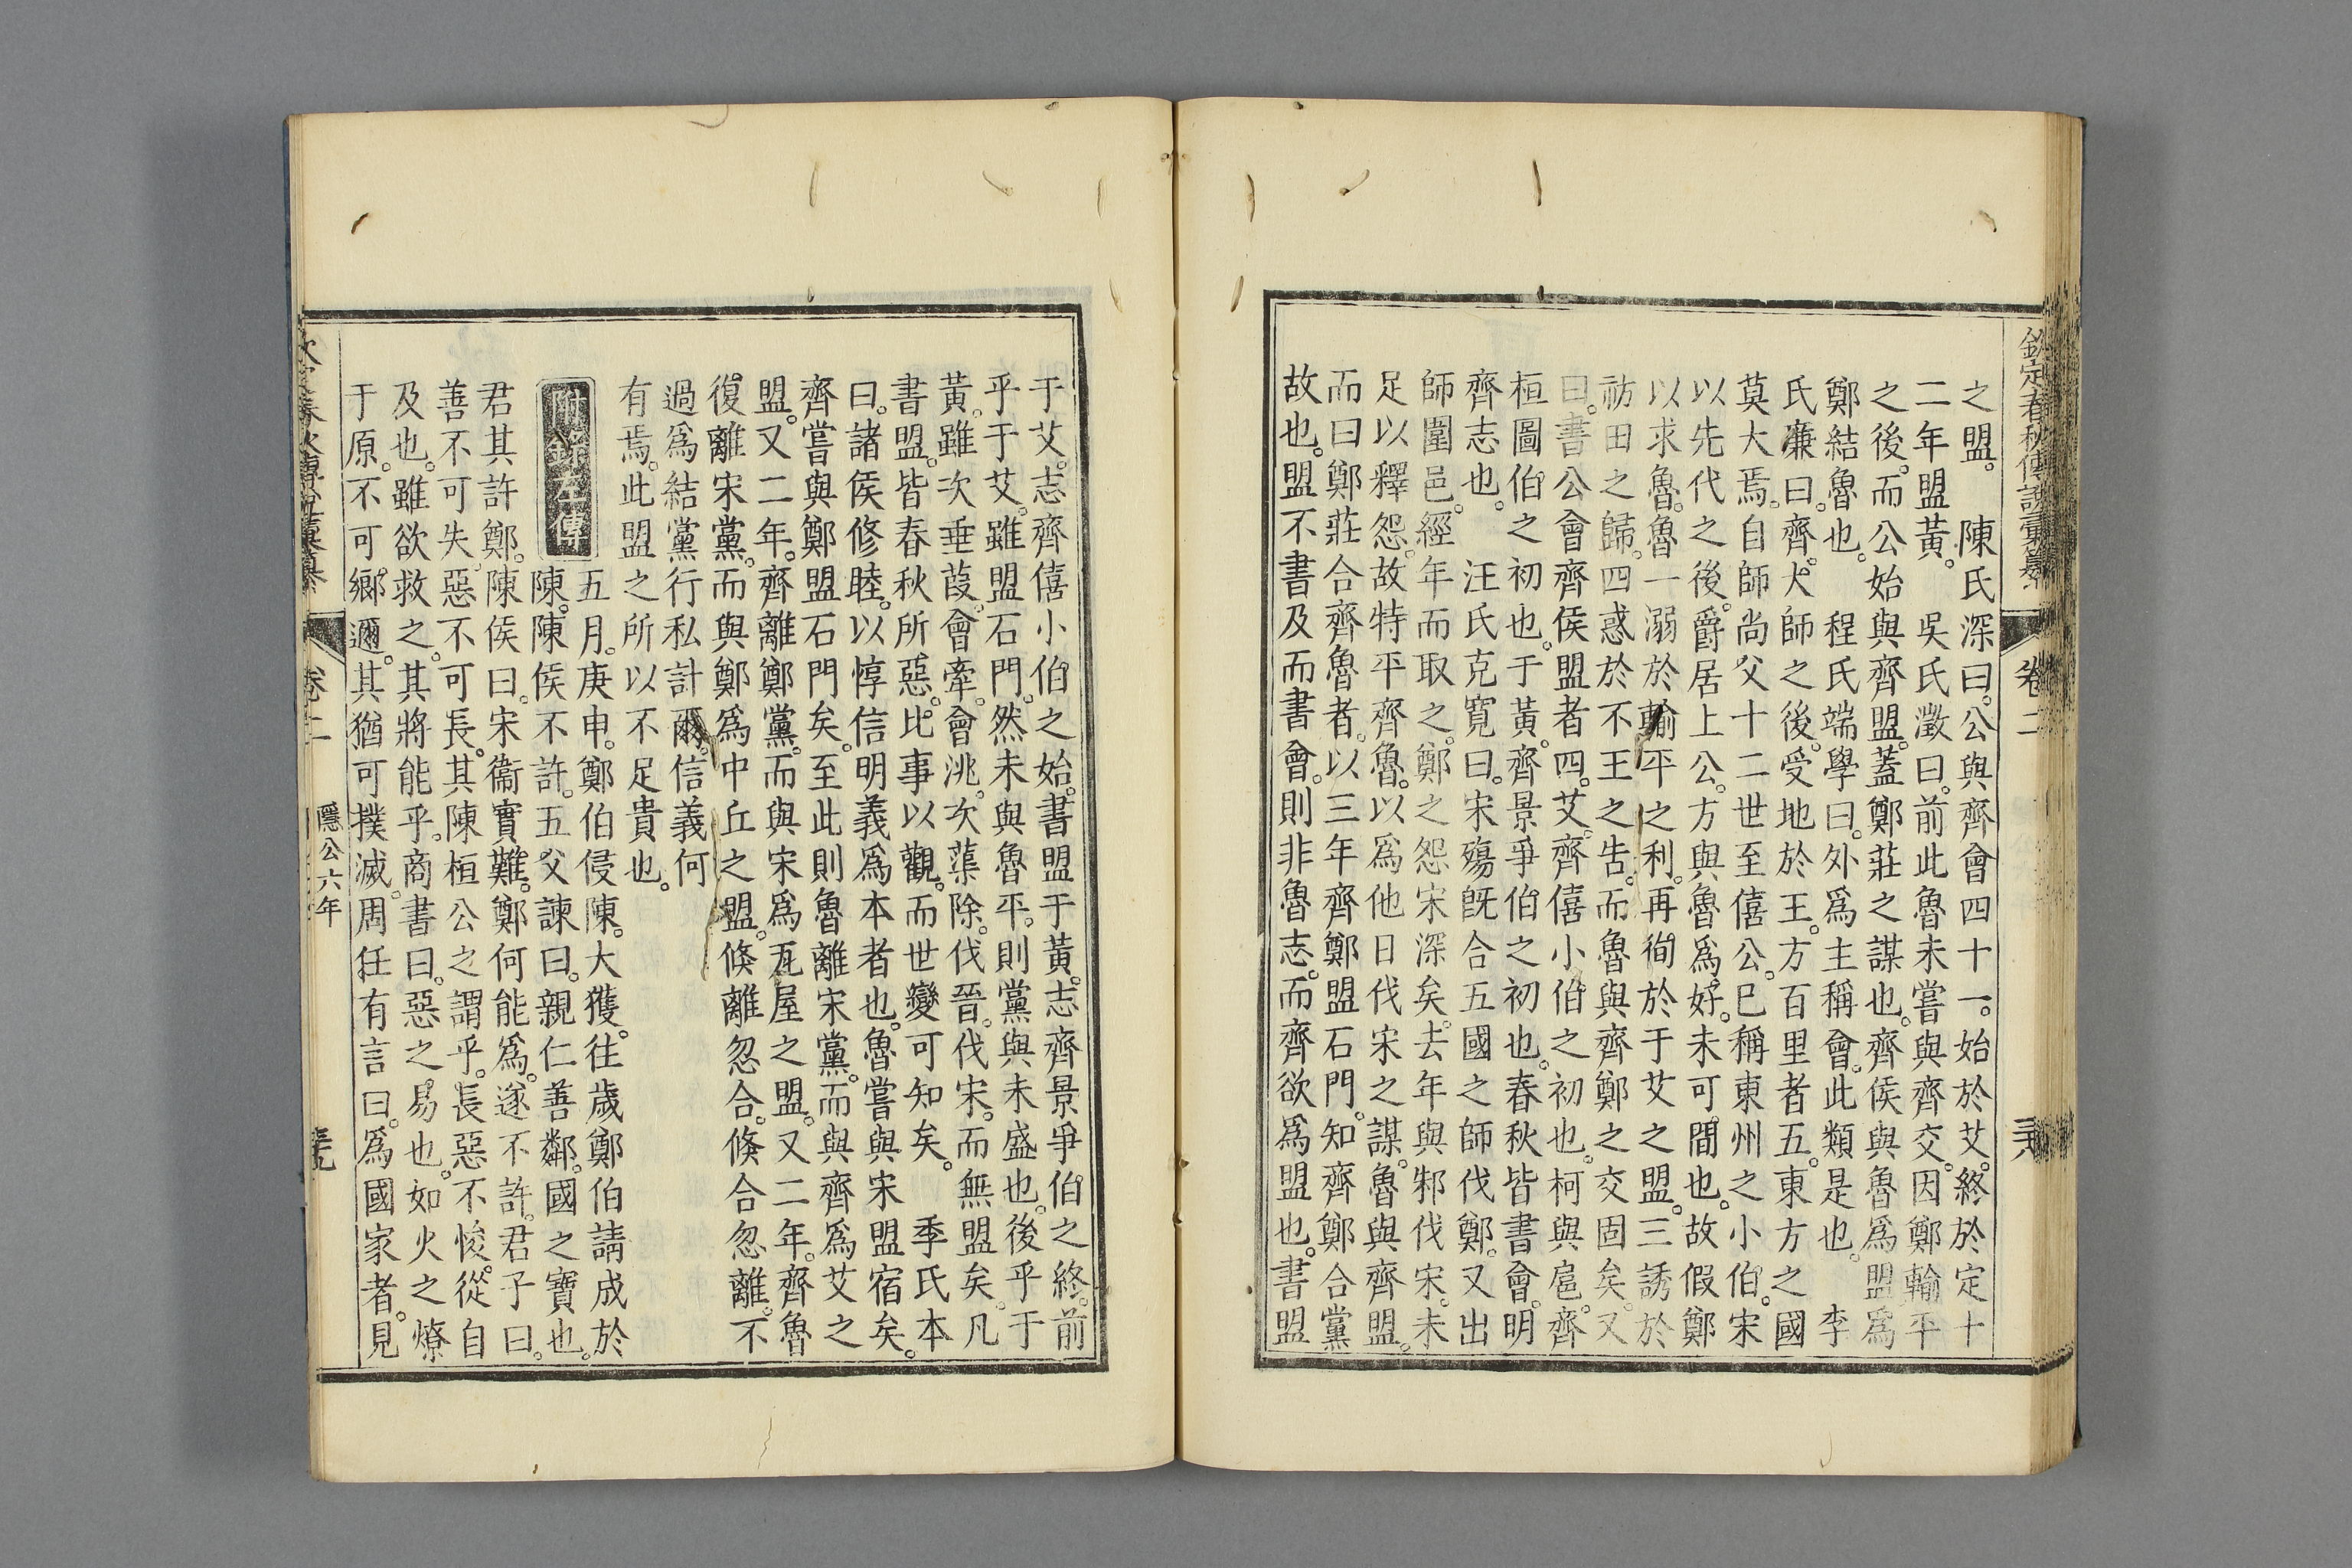 欽定春秋傳說彙纂 卷二 三六
之盟。陳氏深曰。公與齊會四十一。始於艾。終於定十
二年盟黃。吳氏澂曰。前此魯未嘗與齊交。因鄭輸平
之後。而公始與齊盟。蓋鄭莊之謀也。齊侯與魯為盟為
鄭結魯也。程氏端學曰。外爲主稱會。此類是也。李
氏廉曰。齊。大師之後。受地於王。方百里者五。東方之國
莫大焉。自師尚父十二世至僖公。已稱東州之小伯。宋
以先代之後。爵居上公。方與魯爲好。未可間也。故假鄭
以求魯。魯一溺於輸平之利。再徇於于艾之盟。三誘於
祊田之歸。四惑於不王之告。而魯與齊鄭之交固矣。又
曰。書公會齊侯盟者四。艾。齊僖小伯之初也。柯與扈。齊
桓圖伯之初也。于黃。齊景爭伯之初也。春秋皆書會。明
齊志也。汪氏克寬曰。宋殤旣合五國之師伐鄭。又出
師圍邑。經年而取之。鄭之怨宋深矣。去年與邾伐宋。未
足以釋怨。故特平齊魯。以爲他日伐宋之謀。魯與齊盟。
而曰鄭莊合齊魯者。以三年齊鄭盟石門。知齊鄭合黨
故也。盟不書及而書會。則非魯志。而齊欲爲盟也。書盟
于艾。志齊僖小伯之始。書盟于黃。志齊景爭伯之終。前
乎于艾。雖盟石門。然未與魯平。則黨與未盛也。後乎于
黃。雖次垂葭。會牽。會洮。次蕖除。伐晉。伐宋。而無盟矣。凡
書盟。皆春秋所惡。比事以觀。而世變可知矣。季氏本
曰。諸侯修睦。以惇信明義爲本者也。魯嘗與宋盟宿矣。
齊嘗與鄭盟石門矣。至此則魯離宋黨。而與齊爲艾之
盟。又二年。齊離鄭黨。而與宋爲瓦屋之盟。又二年。齊魯
復離宋黨。而與鄭爲中丘之盟。倏離忽合。倏合忽離。不
過爲結黨行私計爾。信義何
有焉。此盟之所以不足貴也。
附錄左傳 五月。庚申。鄭伯侵陳。大獲。往歲鄭伯請成於
陳。陳侯不許。五父諫曰。親仁善鄰。國之寶也。
君其許鄭。陳侯曰。宋衞實難。鄭何能爲。遂不許。君子曰。
善不可失。惡不可長。其陳桓公之謂乎。長惡不悛。從自
及也。雖欲救之。其將能乎。商書曰。惡之易也。如火之燎
于原。不可鄉邇。其猶可撲滅。周任有言曰。爲國家者。見
欽定春秋傳說彙纂 卷二 隱公六年 三九